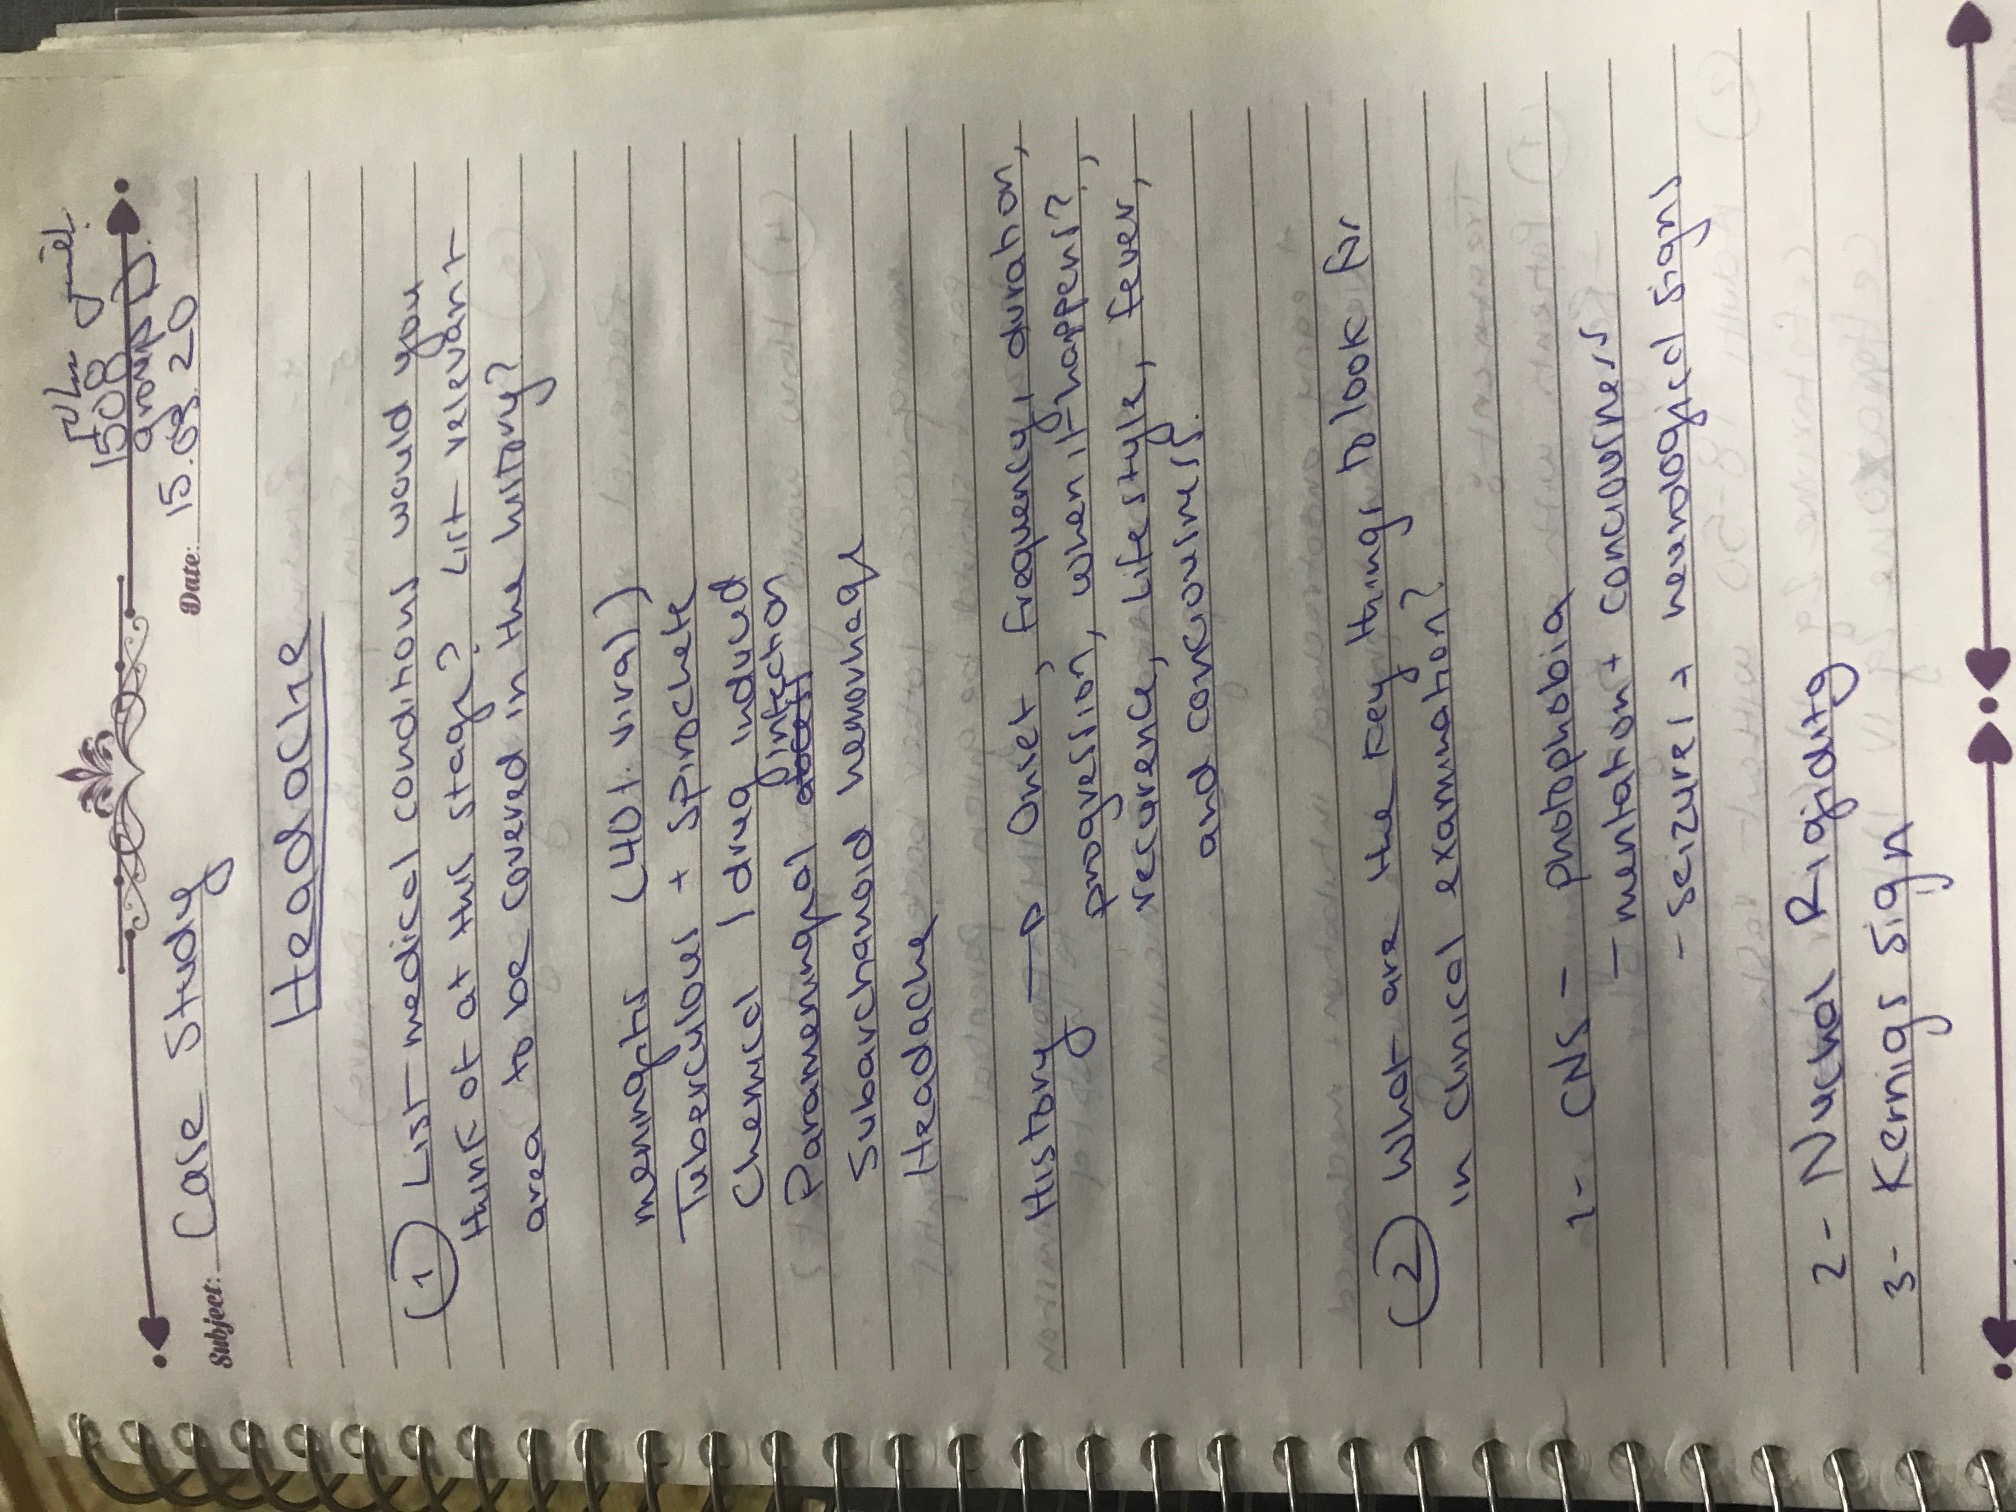 1508
group D.
Subject: Case Study
Date: 15.09.20
Headache
(1) List medical conditions would you
think of at this stage? List relevant
area to be covered in the history?
meningitis (40% viral)
Tuberculous + spirochete
Chemical / drug induced
Parameningeal infection
Subarchanoid hemorrhage
Headache
History → Onset, frequency, duration,
progression, when it happens?,
recurence, life style, fever,
and conciousness.
(2) What are the key things to look for
in clinical examination?
1- CNS - photophobia
- mentation + conciousness
- seizures + neurological signs
2- Nuchal Rigidity
3- Kernigs sign